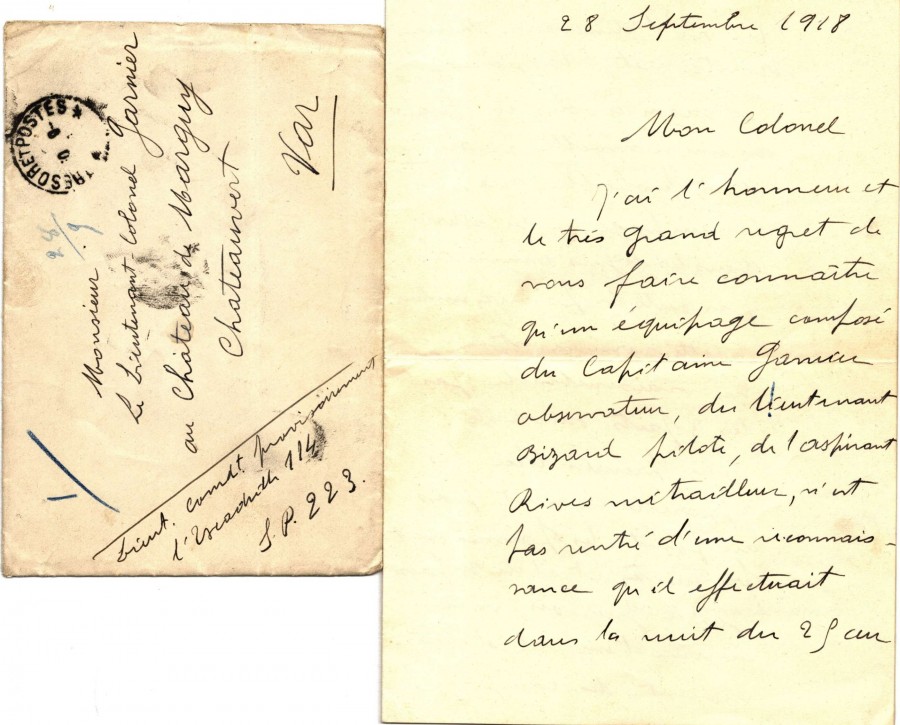 TRESOR ET POSTES
28/9
Monsieur
Le Lieutenant-Colonel Garnier
au Château de Marguy
Chateauvert
Var
Lieut. Comdt provisoirement
l'Escadrille 114
S.P. 223.
28 Septembre 1918
Mon Colonel
J'ai l'honneur et
le très grand regret de
vous faire connaître
qu'un équipage composé
du Capitaine Garnier
observateur, du lieutenant
Bizard pilote, de l'aspirant
Rives mitrailleur, n'est
pas rentré d'une reconnais-
sance qu'il effectuait
dans la nuit du 25 au